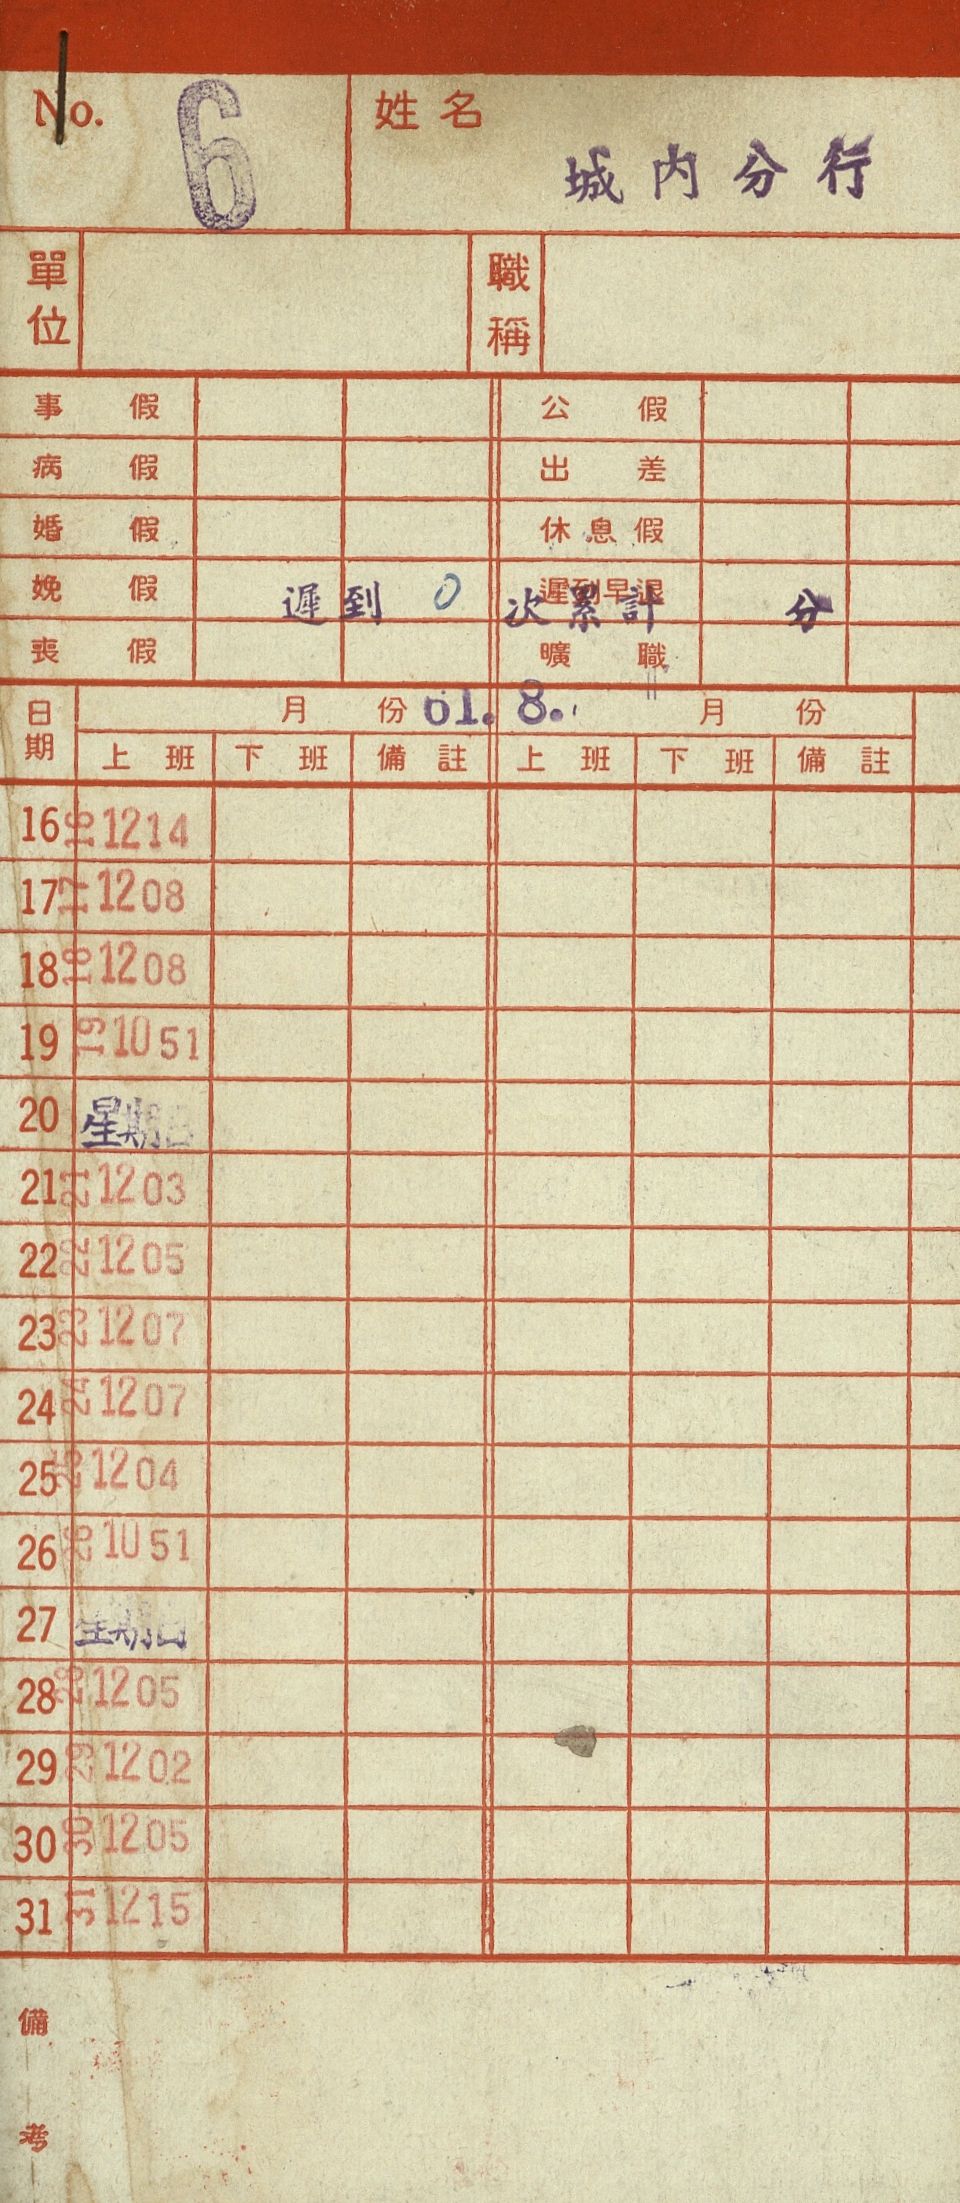 No. 6 姓名 城內分行
單位 職稱
事假 公假
病假 出差
婚假 休息假
娩假 遲到早退
遲到 0 次累計 分
喪假 曠職
日期 月份 61. 8. 月份
上班 下班 備註 上班 下班 備註
16 16 12 14
17 17 12 08
18 18 12 08
19 19 10 51
20 星期日
21 21 12 03
22 22 12 05
23 23 12 07
24 24 12 07
25 25 12 04
26 26 10 51
27 星期日
28 28 12 05
29 29 12 02
30 30 12 05
31 31 12 15
備考